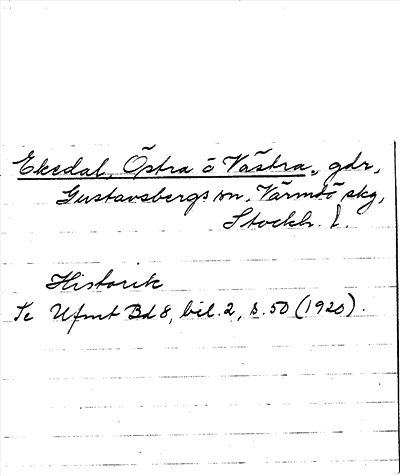 Eksdal, Östra o Västra, gdr,
Gustavsbergs sn. Värmdö skg,
Stockh. l.
Historik
Se Ufmt Bd 8, bil. 2, s. 50 (1920).